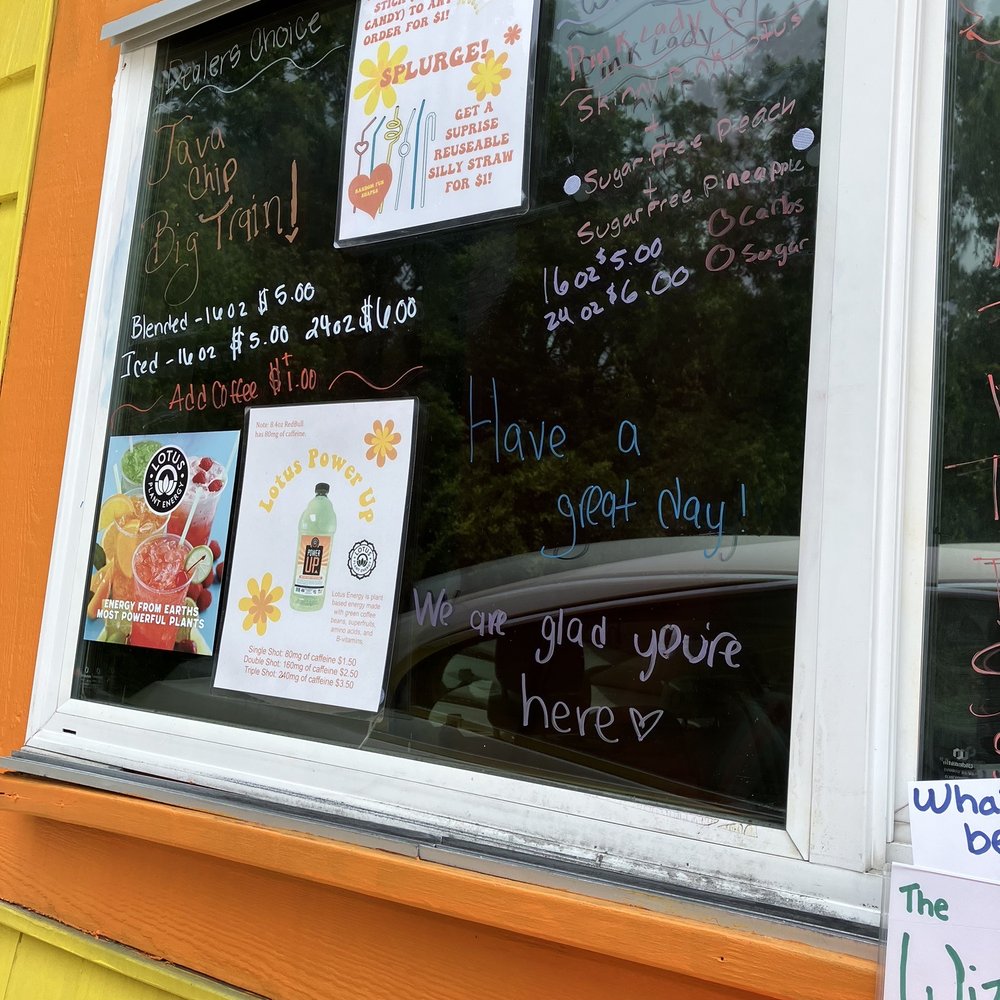 Dealers Choice
Java
Chip
Big Train!
Blended - 16oz $5.00
Iced - 16oz $5.00 24oz $6.00
Add Coffee $+1.00
CANDY) TO ANY
ORDER FOR $1!
SPLURGE!
GET A
SUPRISE
REUSEABLE
SILLY STRAW
FOR $1!
RANDOM FUN
SHAPES
Pink Lady
Sugar Free Peach
+
Sugar Free Pineapple
16oz $5.00
24oz $6.00
0 Carbs
0 Sugar
LOTUS
PLANT ENERGY
ENERGY FROM EARTHS
MOST POWERFUL PLANTS
Note: 8.4oz RedBull
has 80mg of caffeine.
Lotus Power UP
POWER
UP
LOTUS
Lotus Energy is plant
based energy made
with green coffee
beans, superfruits,
amino acids, and
B-vitamins.
Single Shot: 80mg of caffeine $1.50
Double Shot: 160mg of caffeine $2.50
Triple Shot: 240mg of caffeine $3.50
Have a
great day!
We are glad you're
here
The